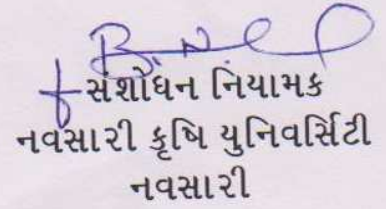 સંશોધન નિયામક
નવસારી કૃષિ યુનિવર્સિટી
નવસારી